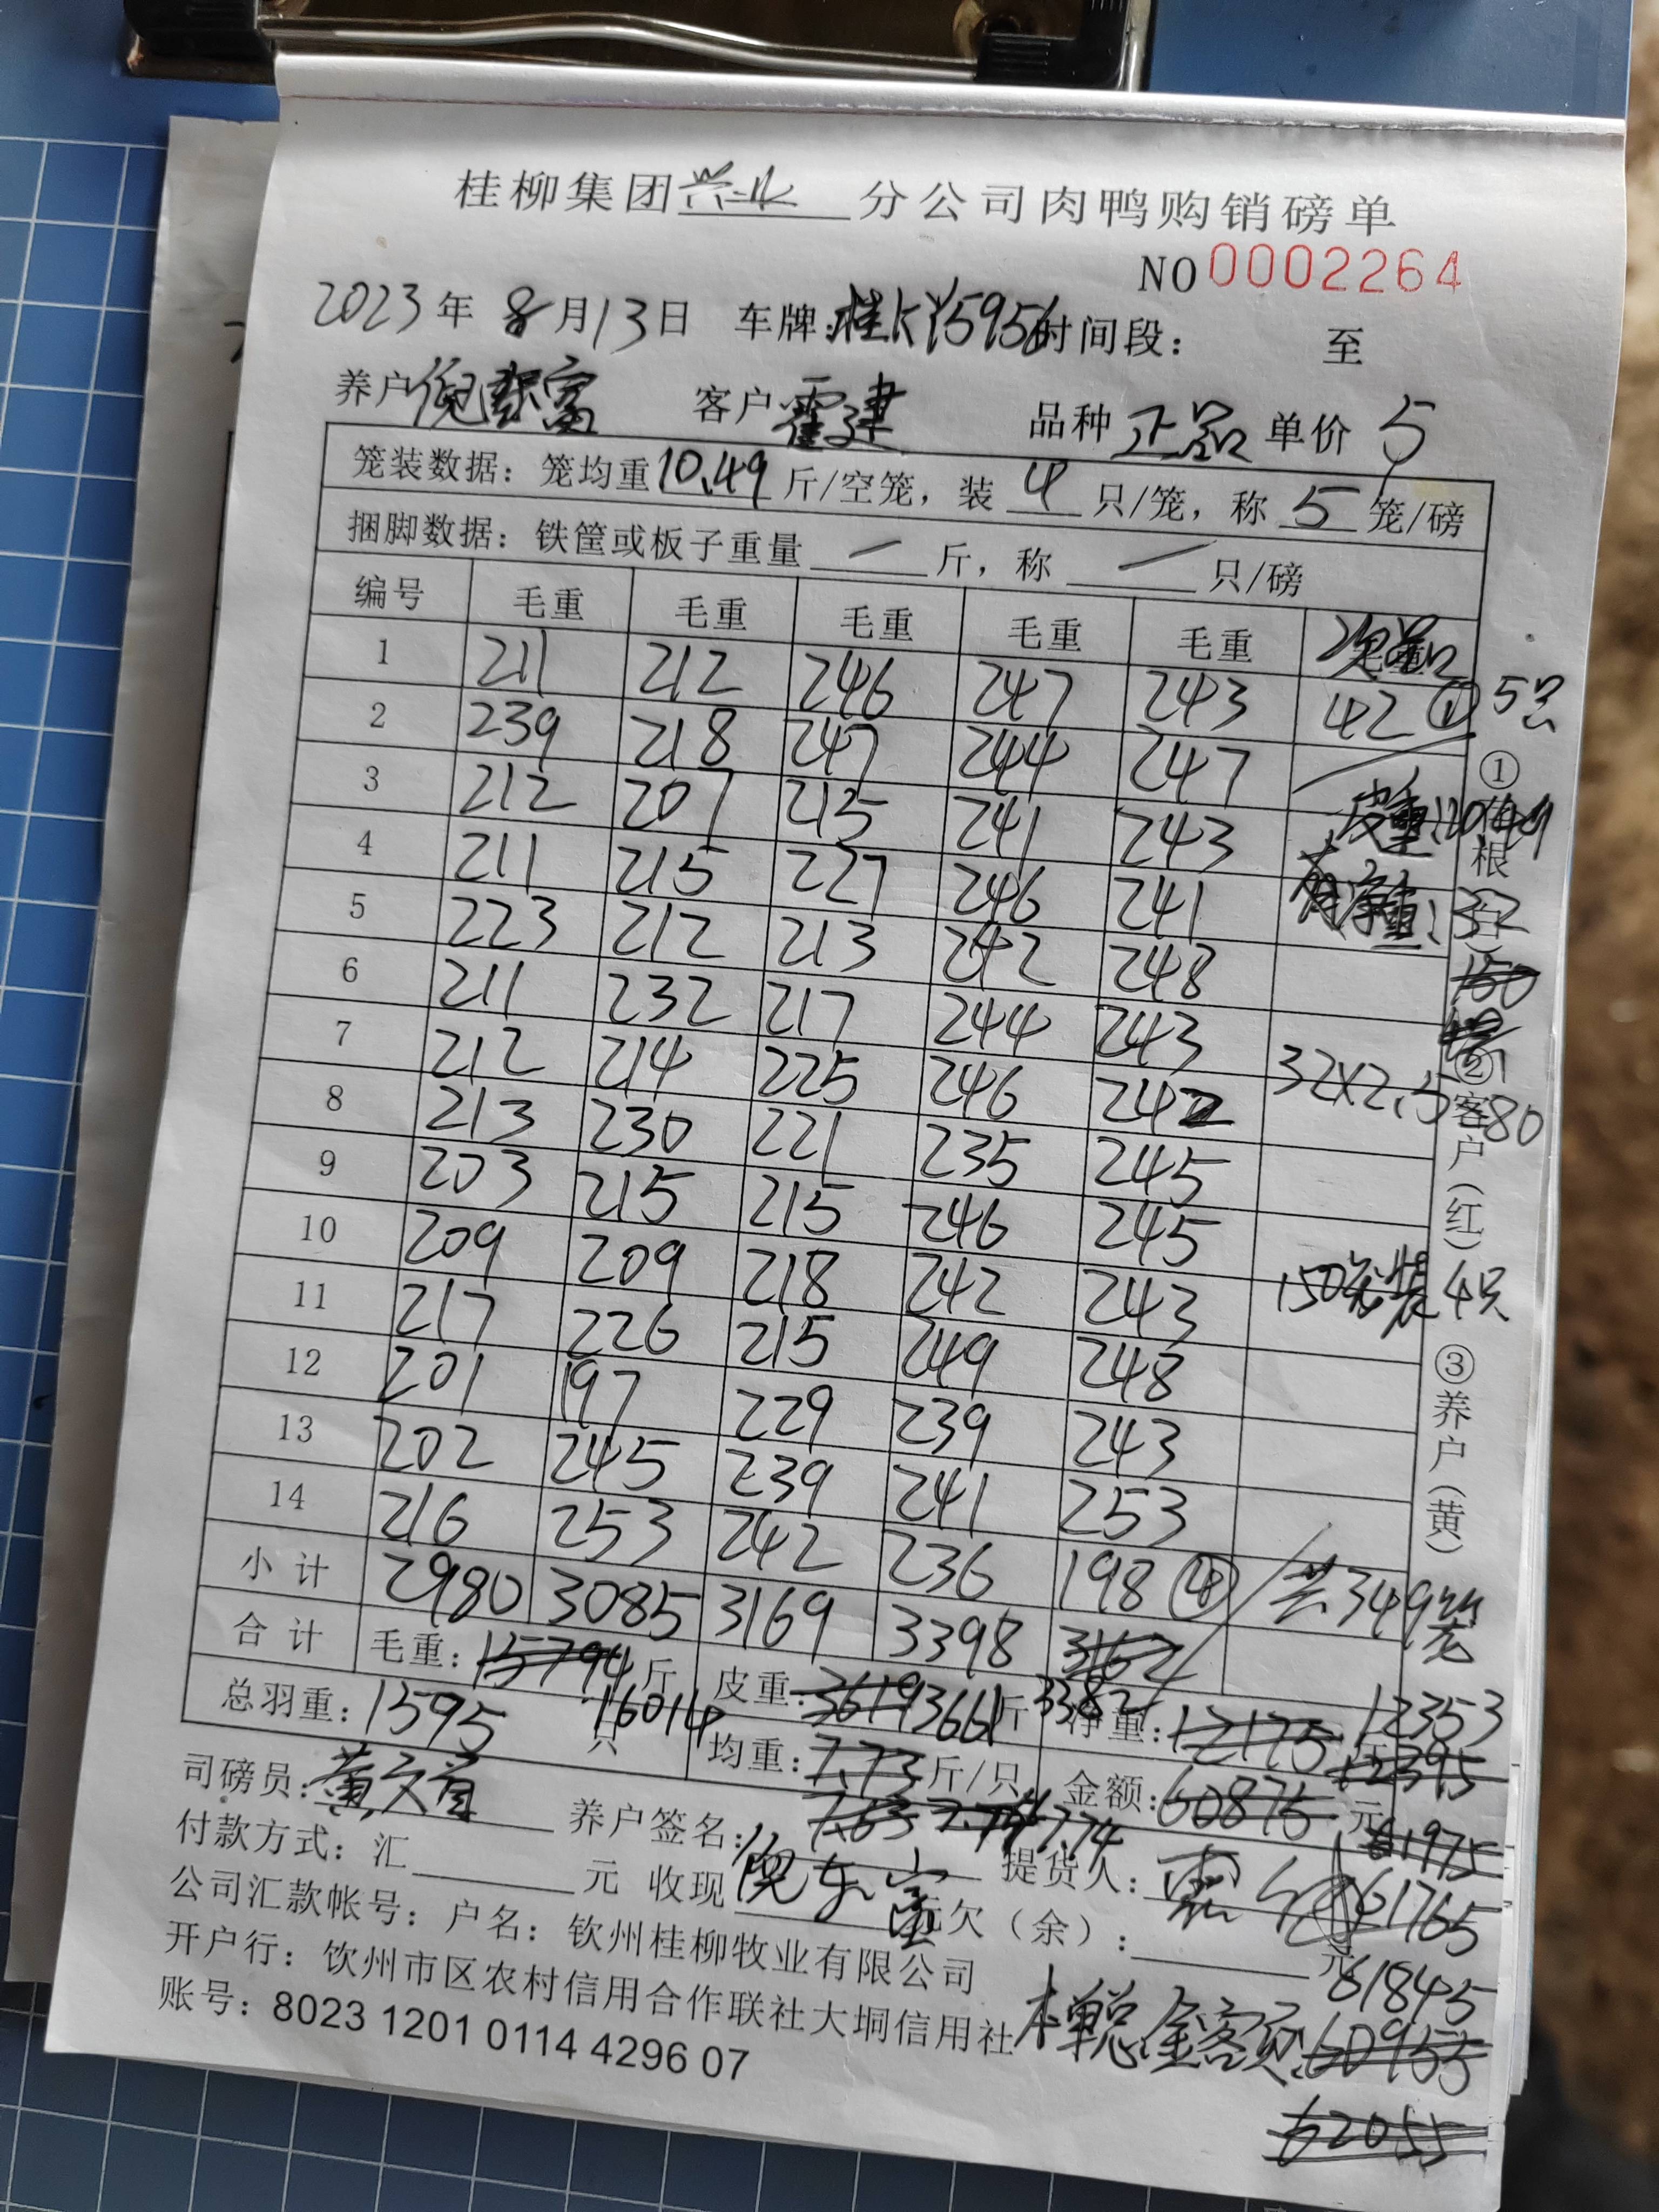 桂柳集团兴业分公司肉鸭购销磅单
NO 0002264
2023年8月13日 车牌:桂KY5956 时间段: 至
养户倪东富 客户霍建 品种正品 单价5
笼装数据:笼均重10.49斤/空笼,装4只/笼,称5笼/磅
捆脚数据:铁筐或板子重量一斤,称一只/磅
编号 毛重 毛重 毛重 毛重 毛重 次品
1 211 212 246 247 243 42 ① 5只
2 239 218 247 244 247
3 212 207 215 241 243 皮重:10.49
4 211 215 227 246 241 净重:32
5 223 212 213 242 248
6 211 232 217 244 243
7 212 214 225 246 242 32×2.5 80
8 213 230 221 235 245
9 203 215 215 246 245
10 209 209 218 242 243 150笼装4只
11 217 226 215 249 248
12 201 197 229 239 243
13 202 245 239 241 253
14 216 253 242 236 198 ④ 共349笼
小计 2980 3085 3169 3398 3162 3382
合计 毛重:15794斤 16014 皮重:3619 3661斤 净重:12175 12353 12395
总羽重:1595只 均重:7.73斤/只 7.63 7.74 金额:60875元 61975 61765
司磅员:黄文首 养户签名:倪东富 提货人:
付款方式:汇 元 收现 元欠(余): 元
公司汇款帐号:户名:钦州桂柳牧业有限公司
开户行:钦州市区农村信用合作联社大垌信用社
账号:8023 1201 0114 4296 07
本单总金额: 61845 60955
62055
① 根
②客户(红)
③养户(黄)